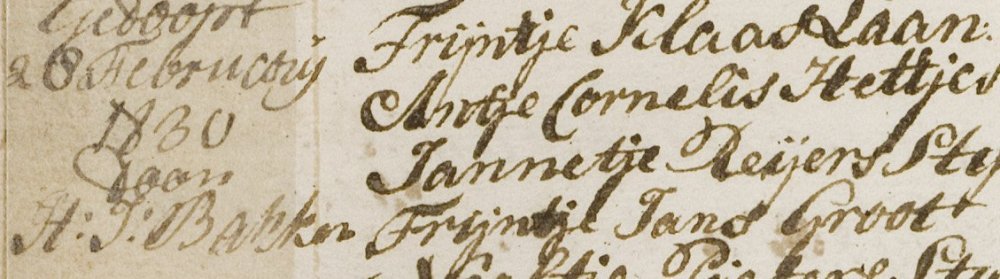 Gedoopt
28 Februarij
1830
Door
H: J: Bakker
Trijntje Klaas Laan:
Antje Cornelis Hettjes
Jannetje Reijers
Trijntje Jans Groott